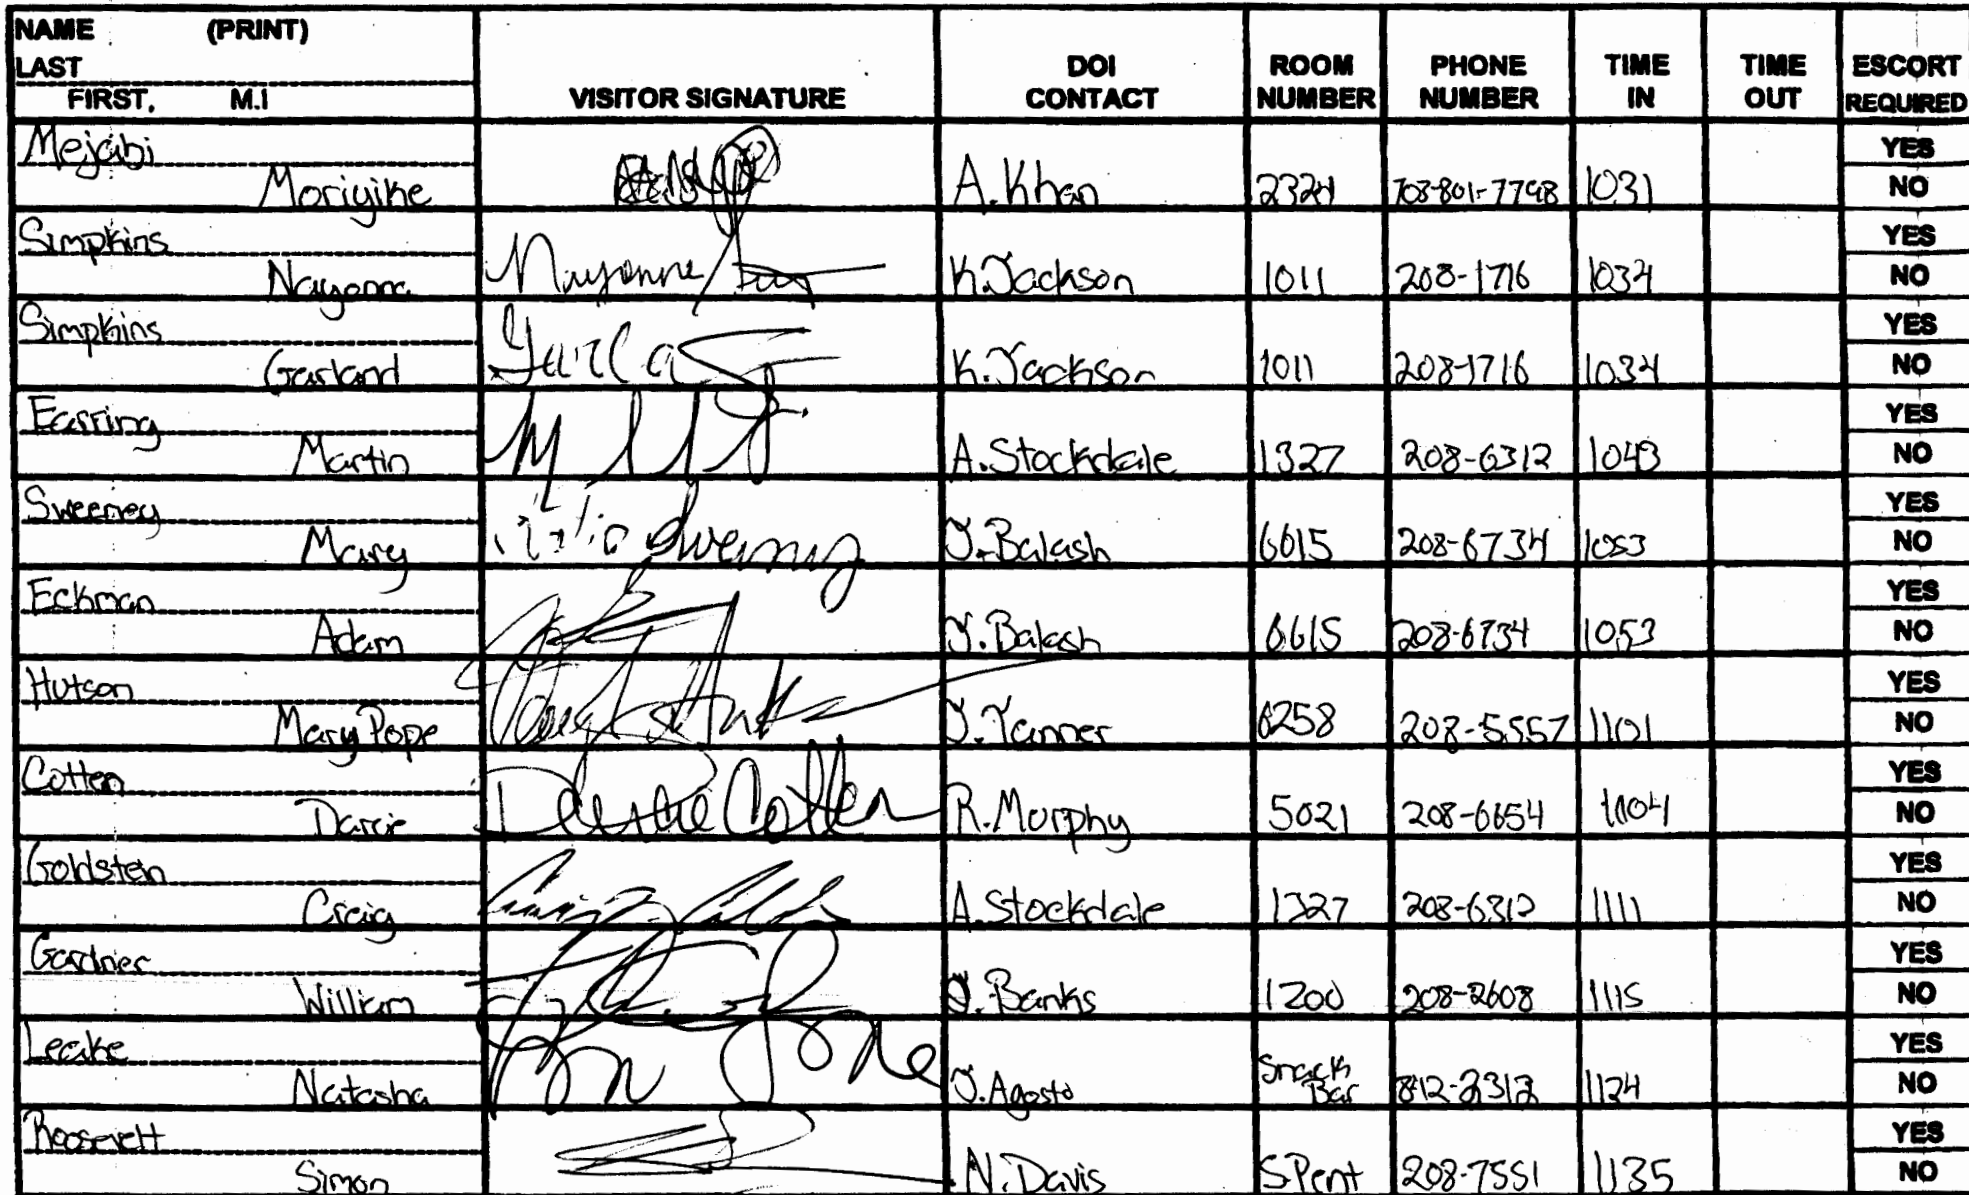 NAME (PRINT)
LAST
FIRST, M.I
VISITOR SIGNATURE
DOI CONTACT
ROOM NUMBER
PHONE NUMBER
TIME IN
TIME OUT
ESCORT REQUIRED
Mejabi YES
Moriyike A.Khan 2324 703-801-7798 1031 NO
Simpkins YES
Nayonna K.Jackson 1011 208-1716 1034 NO
Simpkins YES
Garland K.Jackson 1011 208-1716 1034 NO
Earring YES
Martin A.Stockdale 1327 208-6312 1043 NO
Sweeney YES
Mary Sweeney J.Balash 6615 208-6734 1053 NO
Eckman YES
Adam J.Balash 6615 208-6734 1053 NO
Hutson YES
Mary Pope J.Tanner 6258 208-5557 1101 NO
Cotten YES
Darcie Darcie Cotten R.Murphy 5021 208-6654 1104 NO
Goldstein YES
Craig A.Stockdale 1327 208-6312 1111 NO
Gardner YES
William J.Banks 1200 208-2608 1115 NO
Leake YES
Natasha J.Agosto Snack Bar 842-2312 1124 NO
Roosevelt YES
Simon N.Davis SPent 208-7551 1135 NO